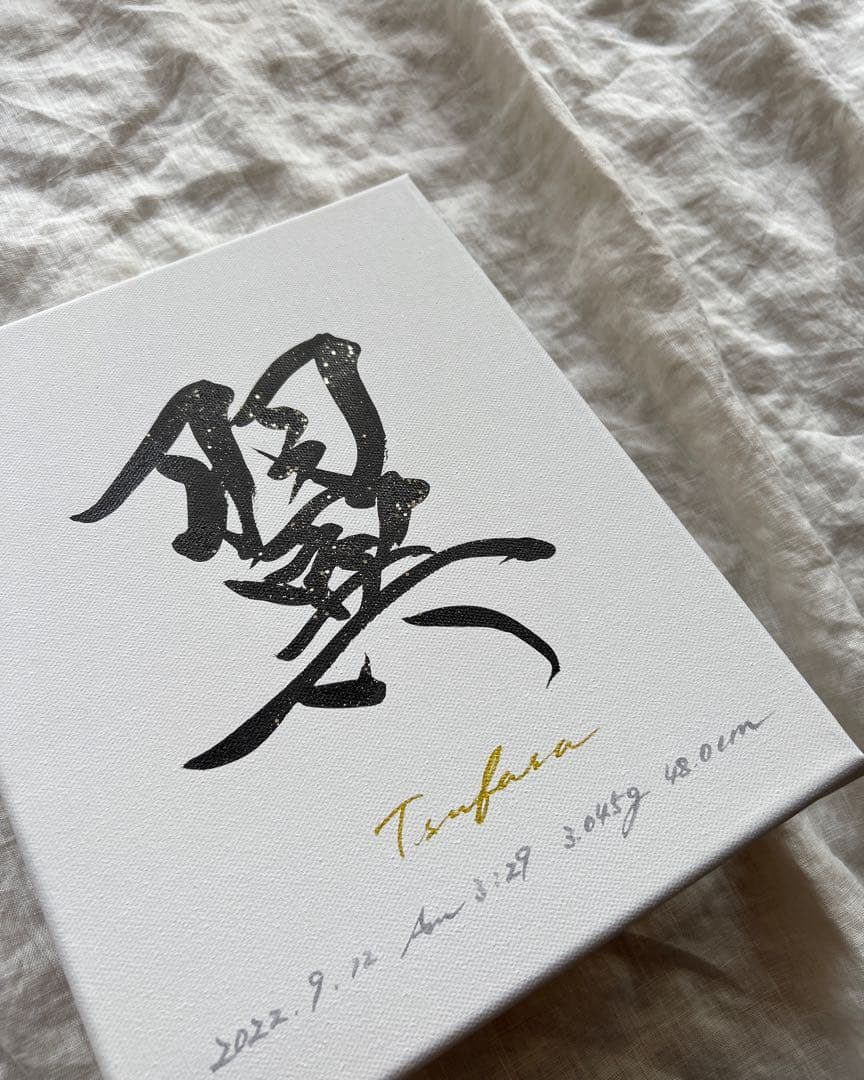 翼
Tsufasa
2022.9.12 Am 3:29 3.045g 48.0cm